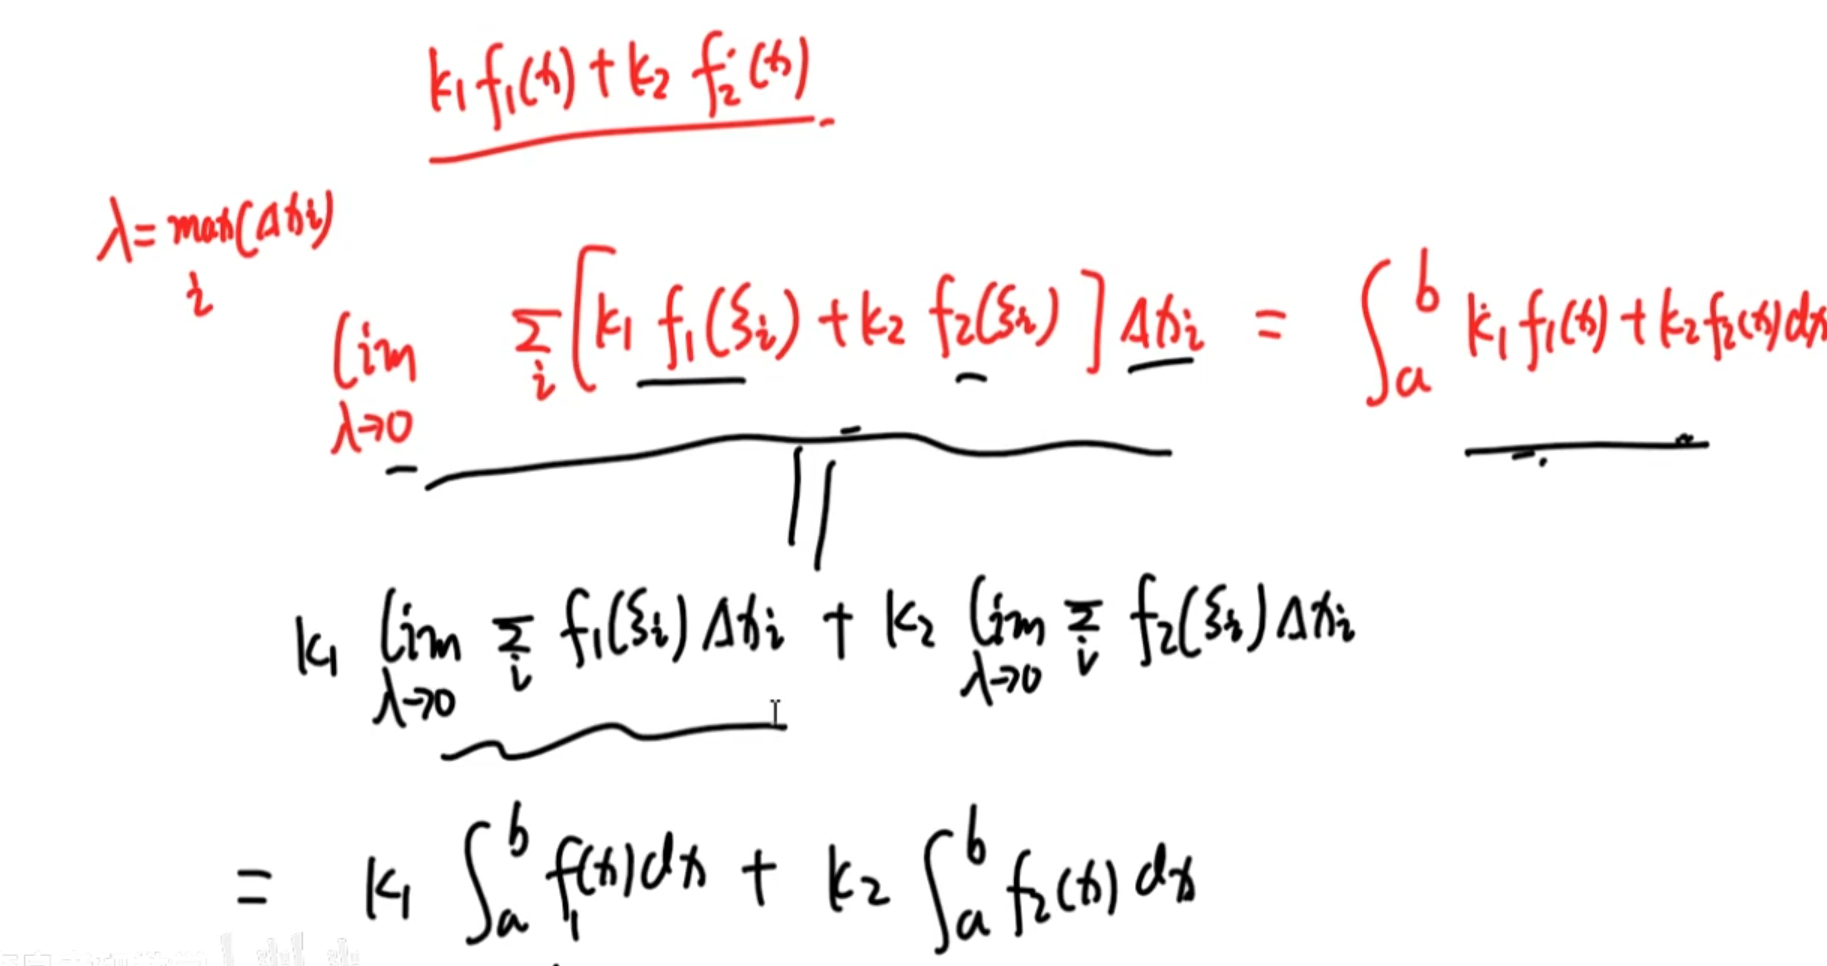 k₁f₁(x) + k₂ f₂(x)
λ = max(Δxᵢ)
i
lim Σ [k₁ f₁(ξᵢ) + k₂ f₂(ξᵢ)] Δxᵢ = ∫ₐᵇ k₁f₁(x) + k₂f₂(x)dx
λ→0 i
||
k₁ lim Σ f₁(ξᵢ)Δxᵢ + k₂ lim Σ f₂(ξᵢ)Δxᵢ
λ→0 i λ→0 i
= k₁ ∫ₐᵇ f₁(x)dx + k₂ ∫ₐᵇ f₂(x)dx